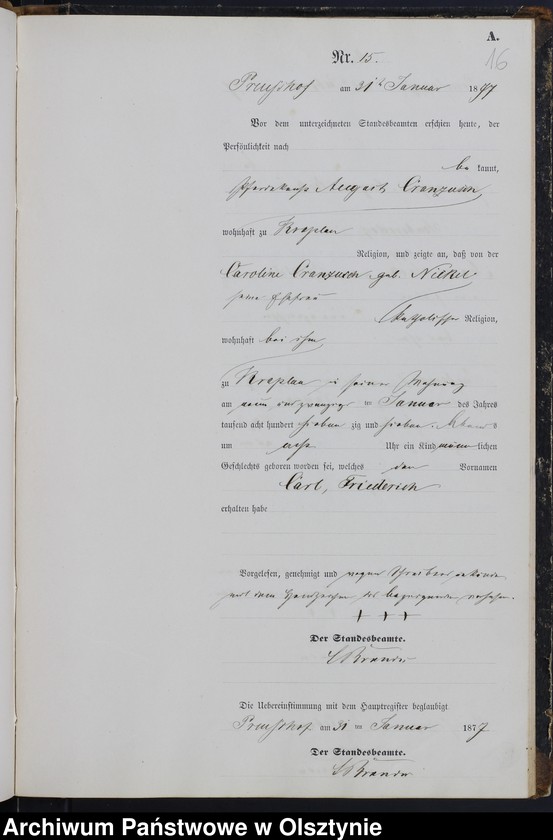 A.
16
Nr. 15.
am 31 Januar 1877
Vor dem unterzeichneten Standesbeamten erschien heute, der
Persönlichkeit nach
bekannt,
August
wohnhaft zu Kraplau
Religion, und zeigte an, daß von der
Caroline geb. Nickel
seine Ehefrau
katholischer Religion,
wohnhaft bei ihm
zu Kraplau in seiner Wohnung
am neun und zwanzigs ten Januar des Jahres
tausend acht hundert sieben zig und sieben
um acht Uhr ein Kind männlichen
Geschlechts geboren worden sei, welches den Vornamen
Carl, Friederich
erhalten habe
Vorgelesen, genehmigt und wegen
mit dem Handzeichen versehen.
+ + +
Der Standesbeamte.
Die Uebereinstimmung mit dem Hauptregister beglaubigt
am 31 ten Januar 1877
Der Standesbeamte.
Archiwum Państwowe w Olsztynie